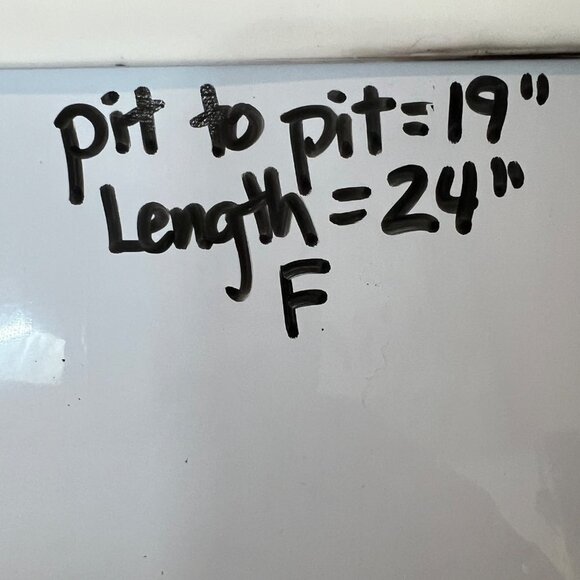 pit to pit = 19"
Length = 24"
F